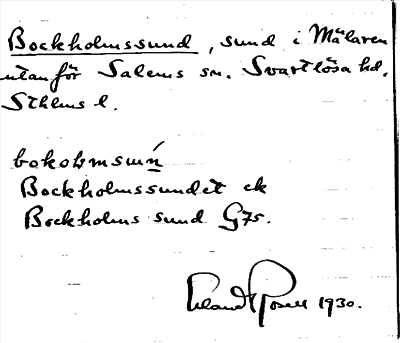 Bockholmssund, sund i Mälaren
utanför Salems sn. Svartlösa hd.
Sthlms l.
bokholmsuǹ
Bockholmssundet ek
Bockholms sund G75.
Erland Rosell 1930.